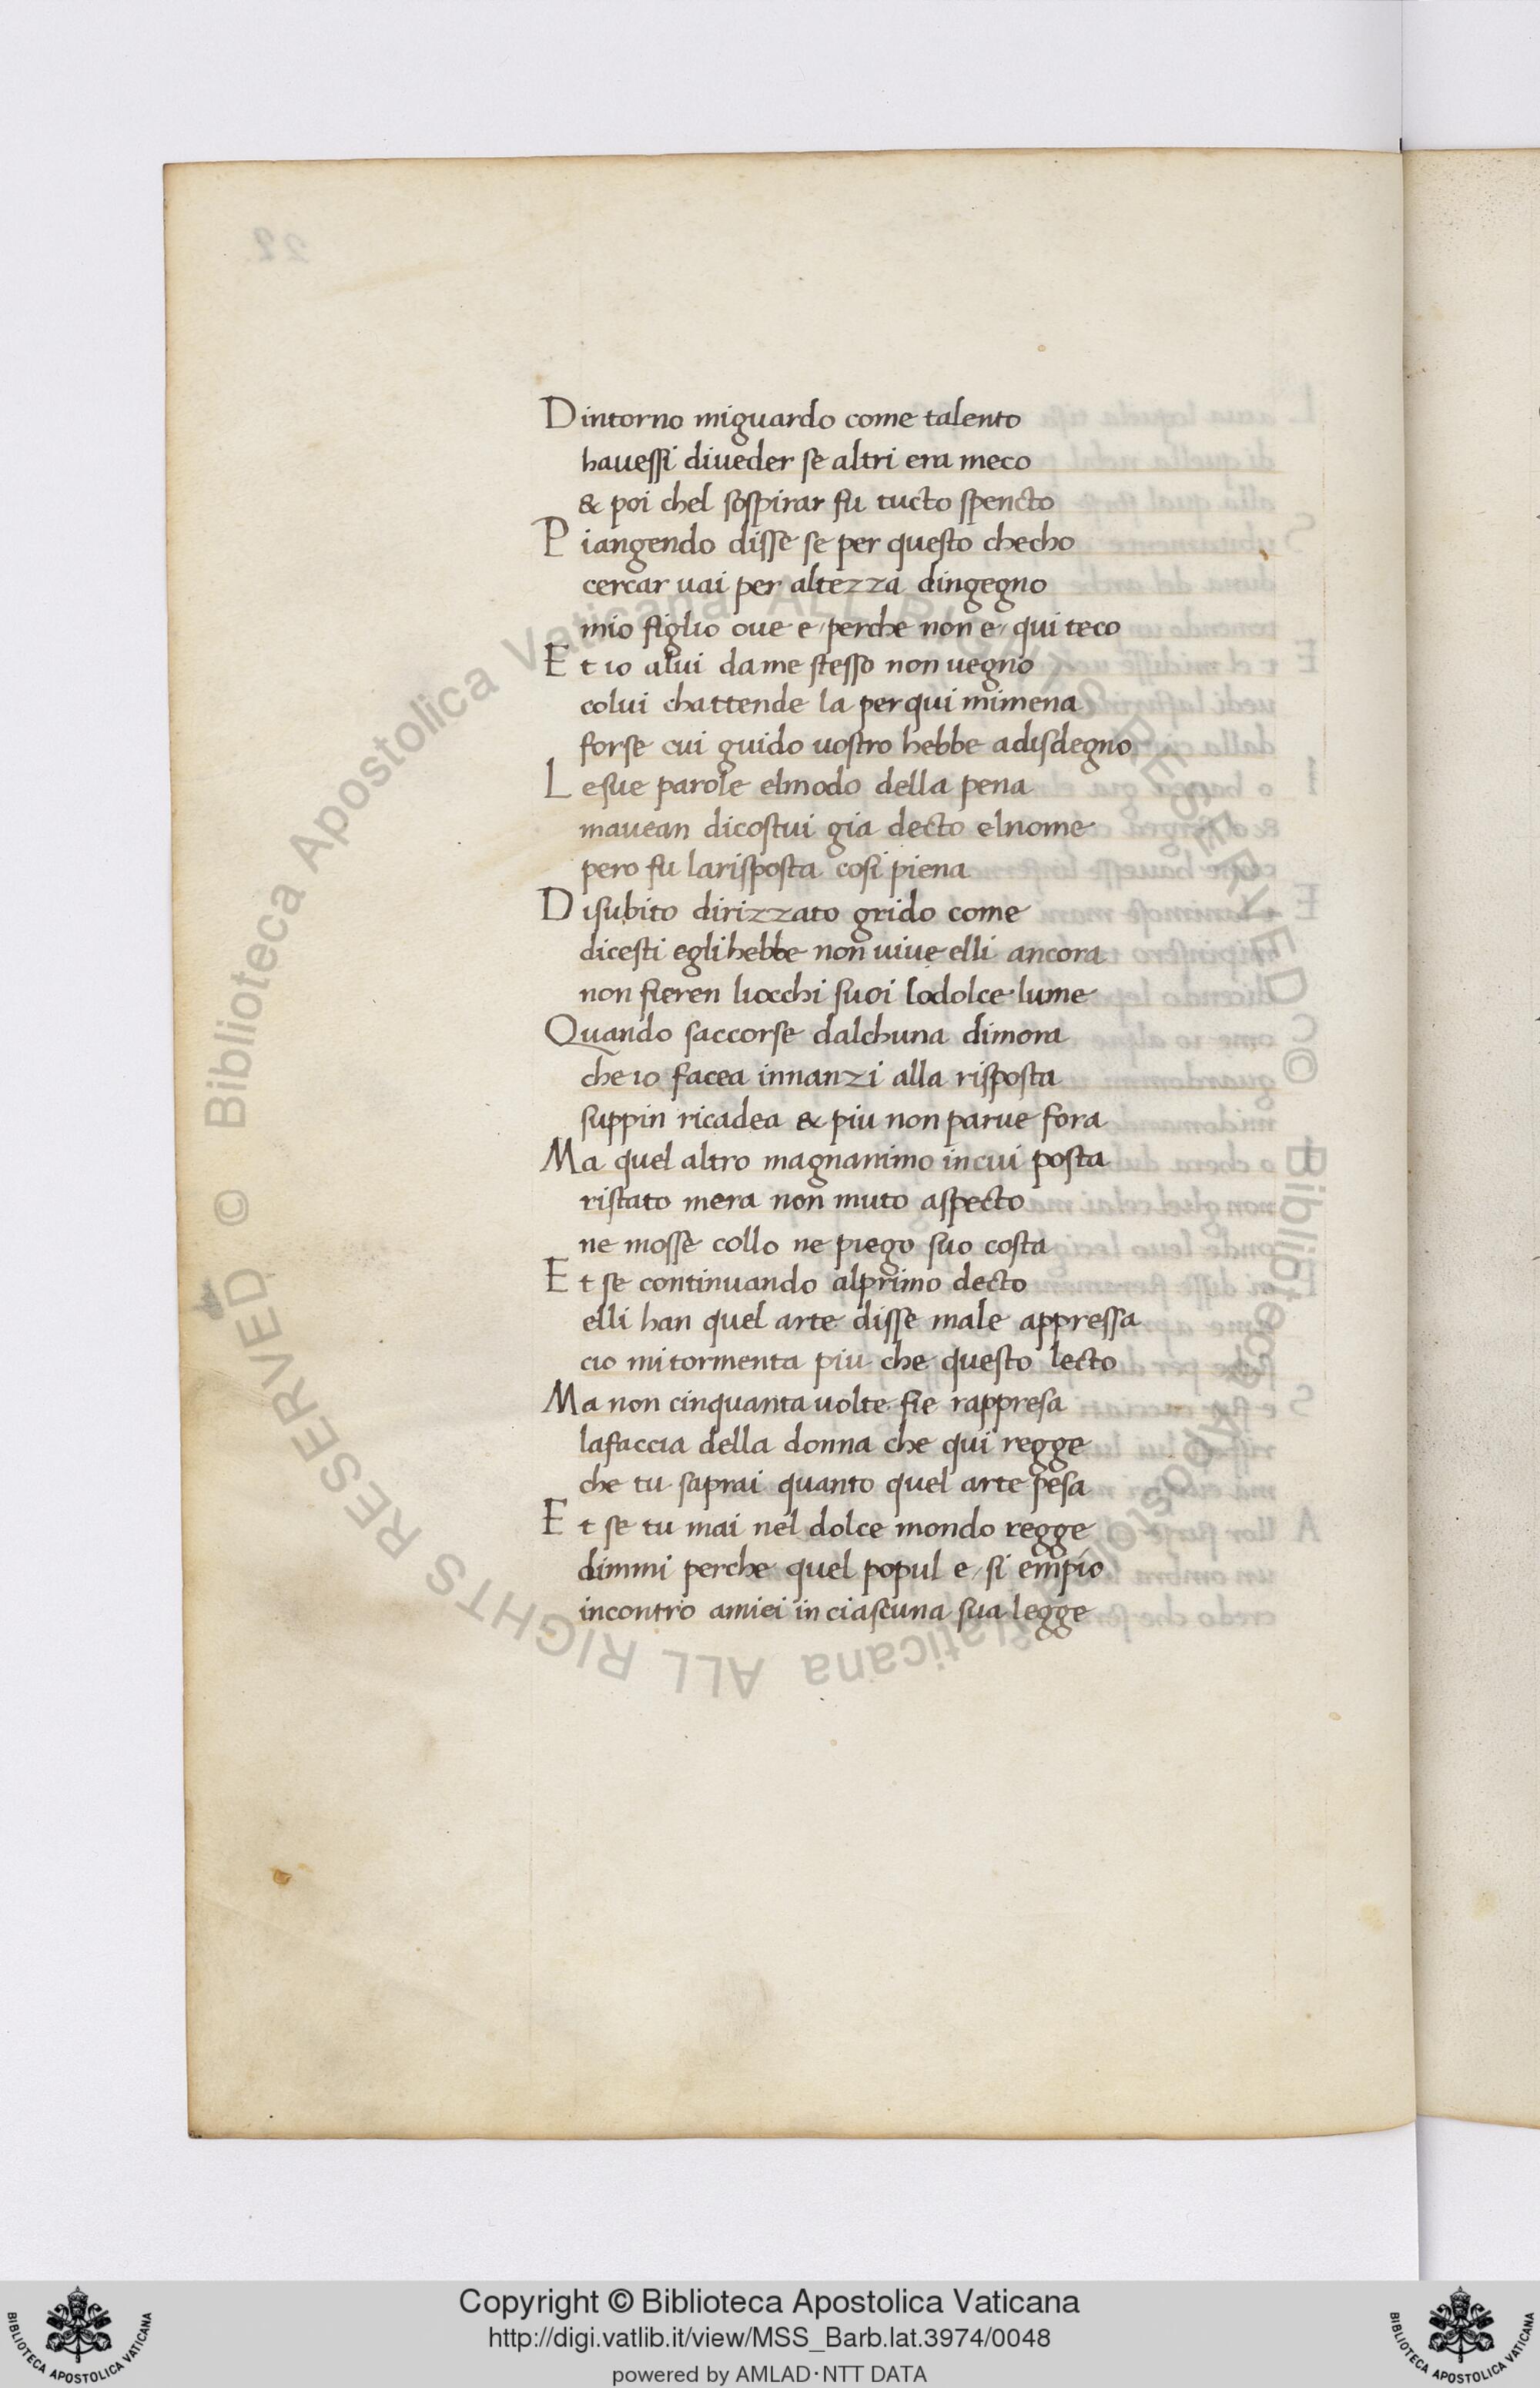 Dintorno miguardo come talento
hauessi diueder se altri era meco
& poi chel sospirar fu tucto spencto
Piangendo disse se per questo checho
cercar uai per altezza dingegno
mio figlio oue e perche non e qui teco
Et io alui dame stesso non uegno
colui chattende la perqui mimena
forse cui guido uostro hebbe adisdegno
Lesue parole elmodo della pena
mauean dicostui gia decto elnome
pero fu larisposta cosi piena
Disubito dirizzato grido come
dicesti eglihebbe non uiue elli ancora
non fieren liocchi suoi lodolce lume
Quando saccorse dalchuna dimora
che io facea innanzi alla risposta
suppin ricadea & piu non parue fora
Ma quel altro magnanimo incui posta
ristato mera non muto aspecto
ne mosse collo ne piego suo costa
Et se continuando alprimo decto
elli han quel arte disse male appressa
cio mitormenta piu che questo lecto
Ma non cinquanta uolte fie rappresa
lafaccia della donna che qui regge
che tu saprai quanto quel arte pesa
Et se tu mai nel dolce mondo regge
dimmi perche quel popul e si empio
incontro amiei in ciascuna sua legge
22
© Biblioteca Apostolica Vaticana ALL RIGHTS RESERVED © Biblioteca Apostolica Vaticana ALL RIGHTS RESERVED
Copyright © Biblioteca Apostolica Vaticana
http://digi.vatlib.it/view/MSS_Barb.lat.3974/0048
powered by AMLAD·NTT DATA
BIBLIOTECA APOSTOLICA VATICANA
BIBLIOTECA APOSTOLICA VATICANA